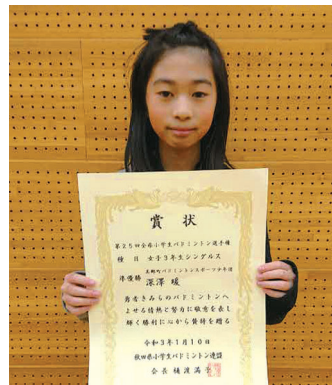 賞状
第25回全県小学生バドミントン選手権
種目 女子3年生シングルス
美郷町バドミントンスポーツ少年団
準優勝 深澤 瑗
勇者きみらのバドミントンへ
よせる情熱と努力に敬意を表し
輝く勝利に心から賛辞を贈る
令和3年1月10日
秋田県小学生バドミントン連盟
会長 樋渡 満